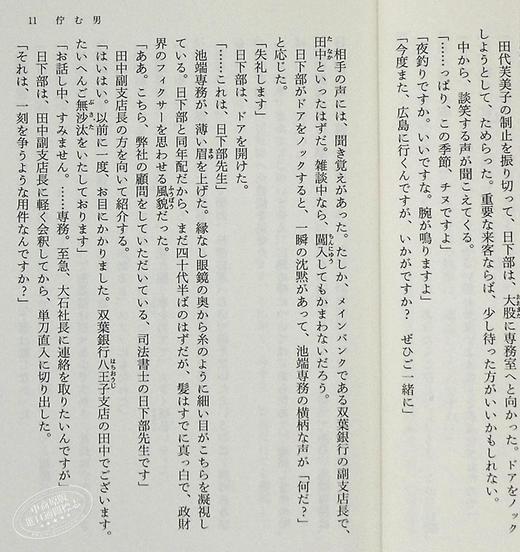 11 佇む男
田代芙美子の制止を振り切って、日下部は、大股に専務室へと向かった。ドアをノック
しようとして、ためらった。重要な来客ならば、少し待った方がいいかもしれない。
中から、談笑する声が聞こえてくる。
「……っぱり、この季節、チヌですよ」
「夜釣りですか。いいですな。腕が鳴りますよ」
「今度また、広島に行くんですが、いかがですか? ぜひご一緒に」
相手の声には、聞き覚えがあった。たしか、メインバンクである双葉銀行の副支店長で、
田中といったはずだ。雑談中なら、闖入してもかまわないだろう。
日下部がドアをノックすると、一瞬の沈黙があって、池端専務の横柄な声が「何だ?」
と応じた。
「失礼します」
日下部は、ドアを開けた。
「……これは、日下部先生」
池端専務が、薄い眉を上げた。縁なし眼鏡の奥から糸のように細い目がこちらを凝視し
ている。日下部と同年配だから、まだ四十代半ばのはずだが、髪はすでに真っ白で、政財
界のフィクサーを思わせる風貌だった。
「ああ。こちら、弊社の顧問をしていただいている、司法書士の日下部先生です」
田中副支店長の方を向いて紹介する。
「はいはい。以前に一度、お目にかかりました。双葉銀行八王子支店の田中でございます。
たいへんご無沙汰をいたしております」
「お話し中、すみません。……専務。至急、大石社長に連絡を取りたいんですが」
日下部は、田中副支店長に軽く会釈してから、単刀直入に切り出した。
「それは、一刻を争うような用件なんですか?」